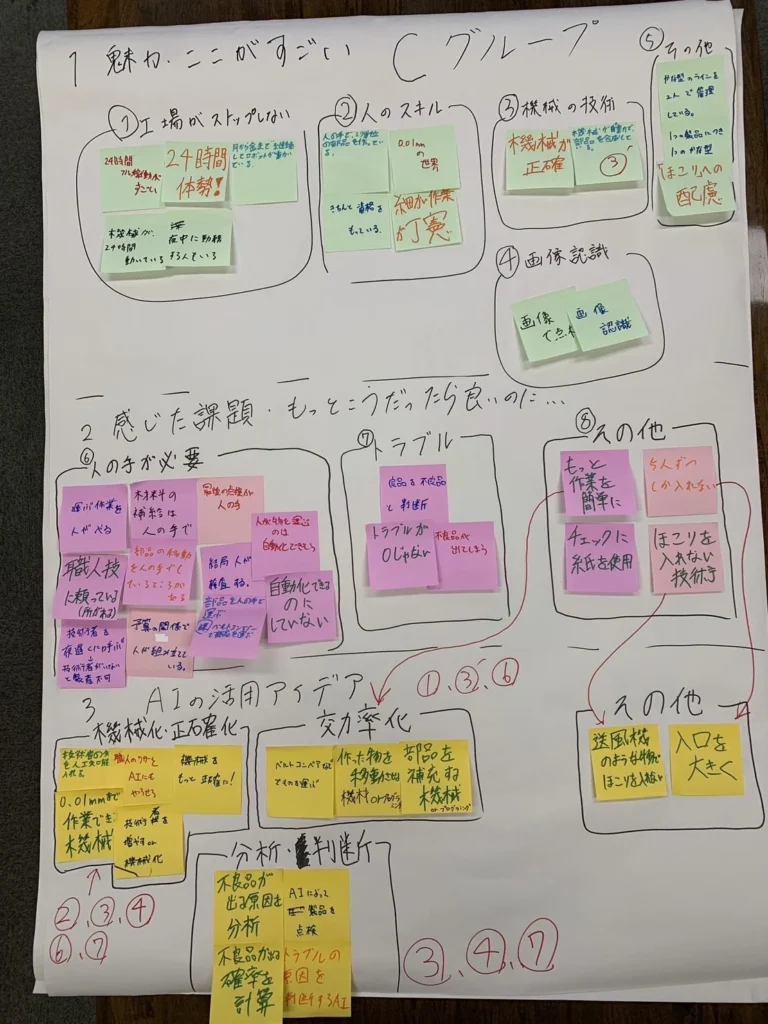 1 魅力・ここがすごい Cグループ
①工場がストップしない
24時間
すごい
24時間
体勢！
機械が、
24時間
動いている
夜中に勤務
する人もいる
②人のスキル
0.01mm
の
世界
きちんと資格を
もっている。
細かい作業
が丁寧
③機械の技術
機械が
正確
③
④画像認識
画像
で点検
画像
認識
⑤その他
2人で管理
している。
1つの製品につき
ほこりへの
配慮
2 感じた課題・もっとこうだったら良いのに…
⑥人の手が必要
運ぶ作業を
人がやる
材料の
補給は
人の手で
最後の点検が
人の手
職人技
に頼っている
部品の移動
を人の手でし
ているところが
ある
結局人が
検査する。
部品を人の手で
運ぶ
人が物を運ぶ
のは
自動化できそう
自動化できる
のに
していない
予算の関係で
人が組み立てて
いる。
⑦トラブル
良品を不良品
と判断
トラブルが
0じゃない
不良品が
出てしまう
⑧その他
もっと
作業を
簡単に
5人ずつ
しか入れない
チェックに
紙を使用
ほこりを
入れない
技術
3 AIの活用アイデア
①、③、⑥
機械化・正確化
職人のワザを
AIにも
やらせる
機械を
もっと正確に！
0.01mmまで
作業できる
機械
技術者を
増やすor
機械化
②、③、④
⑥、⑦
効率化
ベルトコンベアなど
でものを運ぶ
作った物を
移動させる
機械orプログラミング
部品を
補充する
機械
orプログラミング
その他
送風機
のような物で
ほこりを入れない
入口を
大きく
分析・判断
不良品が
出る原因を
分析
AIによって
製品を
点検
不良品が出る
確率を
計算
トラブルの
原因を
判断するAI
③、④、⑦